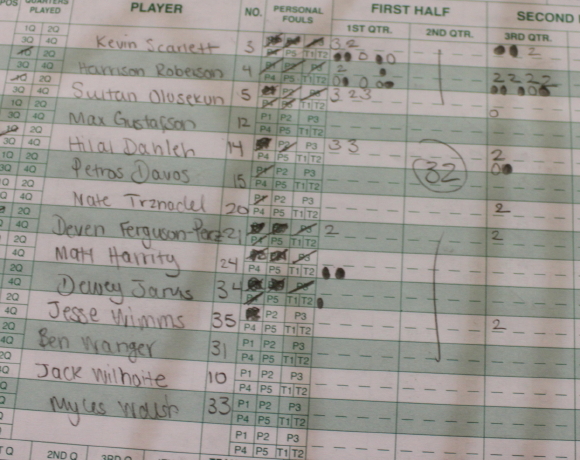 POS QUARTERS PLAYED PLAYER NO. PERSONAL FOULS FIRST HALF SECOND
1ST QTR. 2ND QTR. 3RD QTR.
Kevin Scarlett 3 P5 T1 T2 3 2 2
Harrison Roberson 4 2 2 2 2 2
Sultan Olosekun 5 P2 3 2 3
Max Gustafson 12 P1 P2 P3 0
P4 P5 T1 T2
Hilal Dahleh 14 P2 P3 3 3 2
P4 P5 T1 T2 32
Petros Davos 15 P2 P3 0
P4 P5 T1 T2
Nate Trznadel 20 P1 P2 P3 2
P4 P5 T1 T2
Deven Ferguson-Perz 21 2 2
P5 T1 T2
Matt Harrity 24
P4 P5 T1 T2
Dewey Jarvis 34
P5 T1 T2
Jesse Wimms 35 P2 P3 2
P4 P5 T1 T2
Ben Wanger 31 P1 P2 P3
P4 P5 T1 T2
Jack Wilhoite 10 P1 P2 P3
P4 P5 T1 T2
Myles Walsh 33 P1 P2 P3
P4 P5 T1 T2
P1 P2 P3
P4 P5 T1 T2
2ND Q 3RD Q